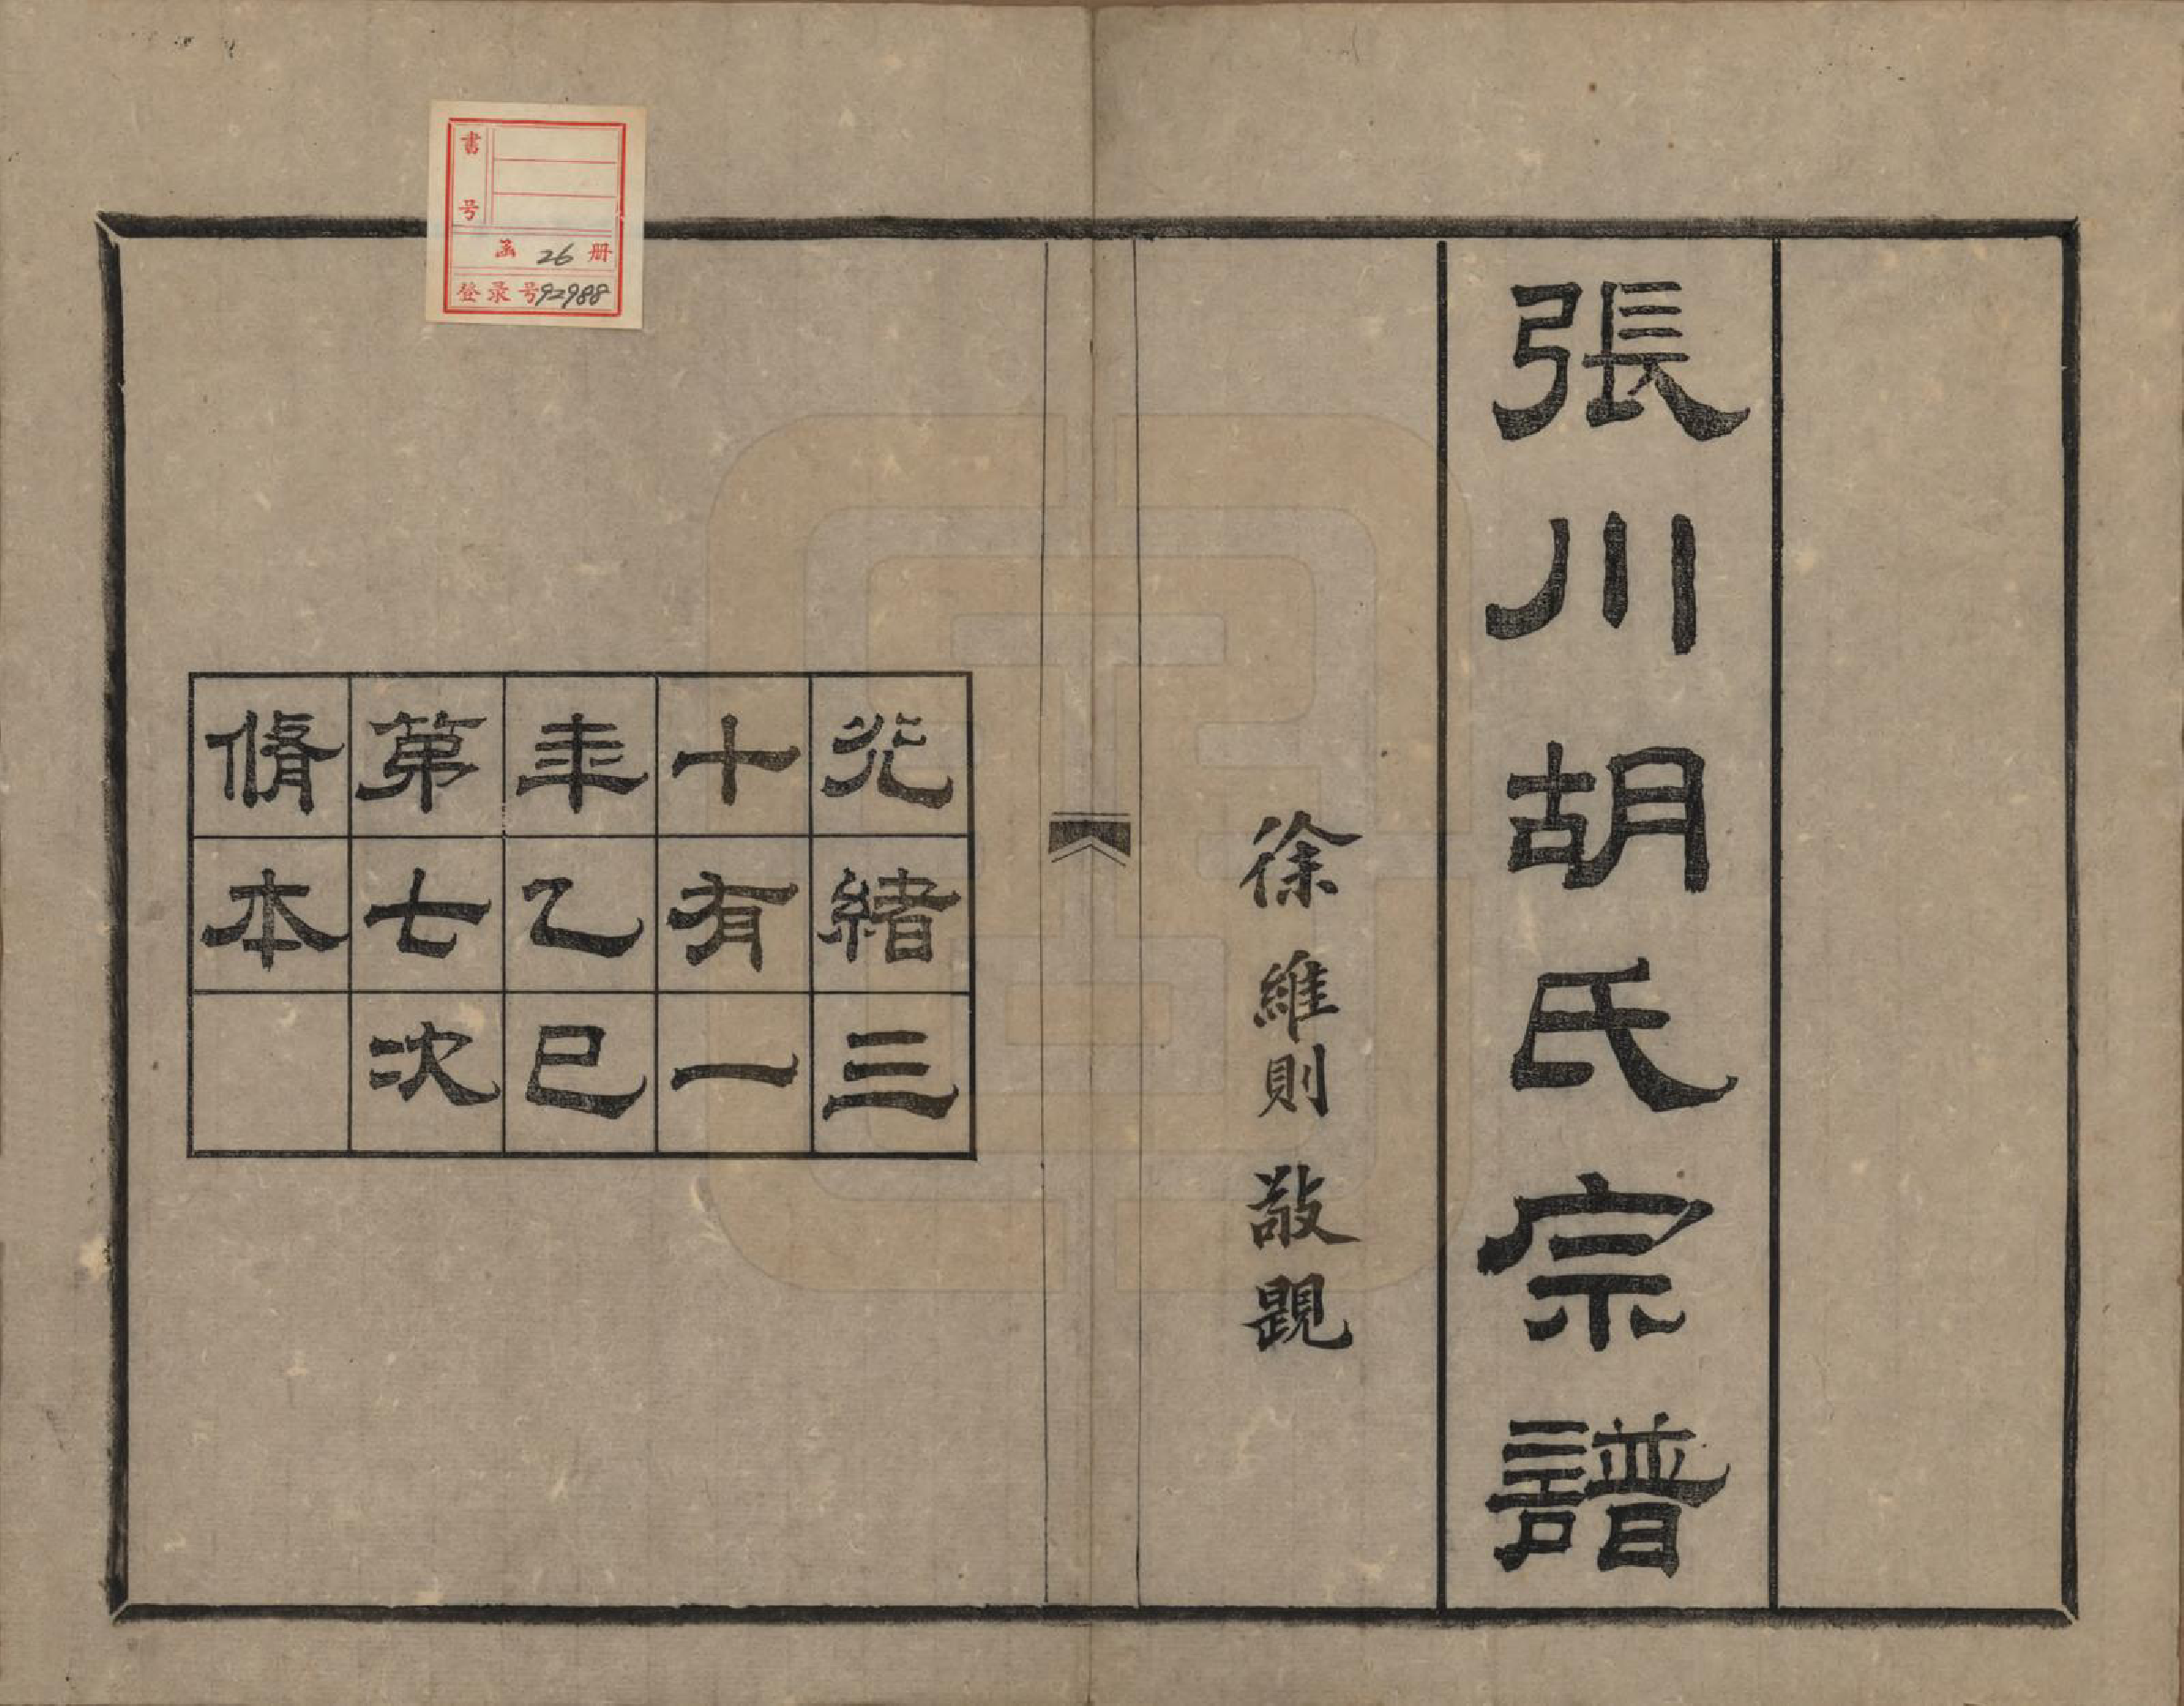 張川胡氏宗譜
徐維則敬題
光緒三
十有一
年乙巳
第七次
脩本
書号
函 26 册
登录号 92988